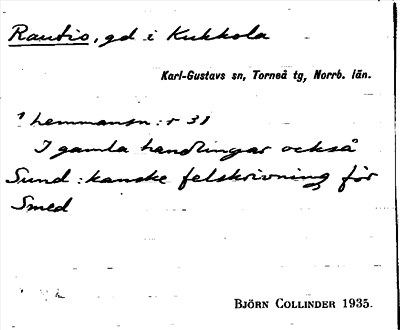 Rautio, gd i Kukkola
Karl-Gustavs sn, Torneå tg, Norrb. län.
? Hemmansn:r 31
I gamla handlingar också
Sund : kanske felskrivning för
Smed
BJÖRN COLLINDER 1935.